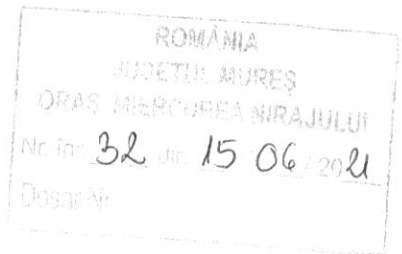 ROMÂNIA
JUDEŢUL MUREŞ
ORAŞ MIERCUREA NIRAJULUI
Nr. înr. 32 din 15 06 2021
Dosar Nr.